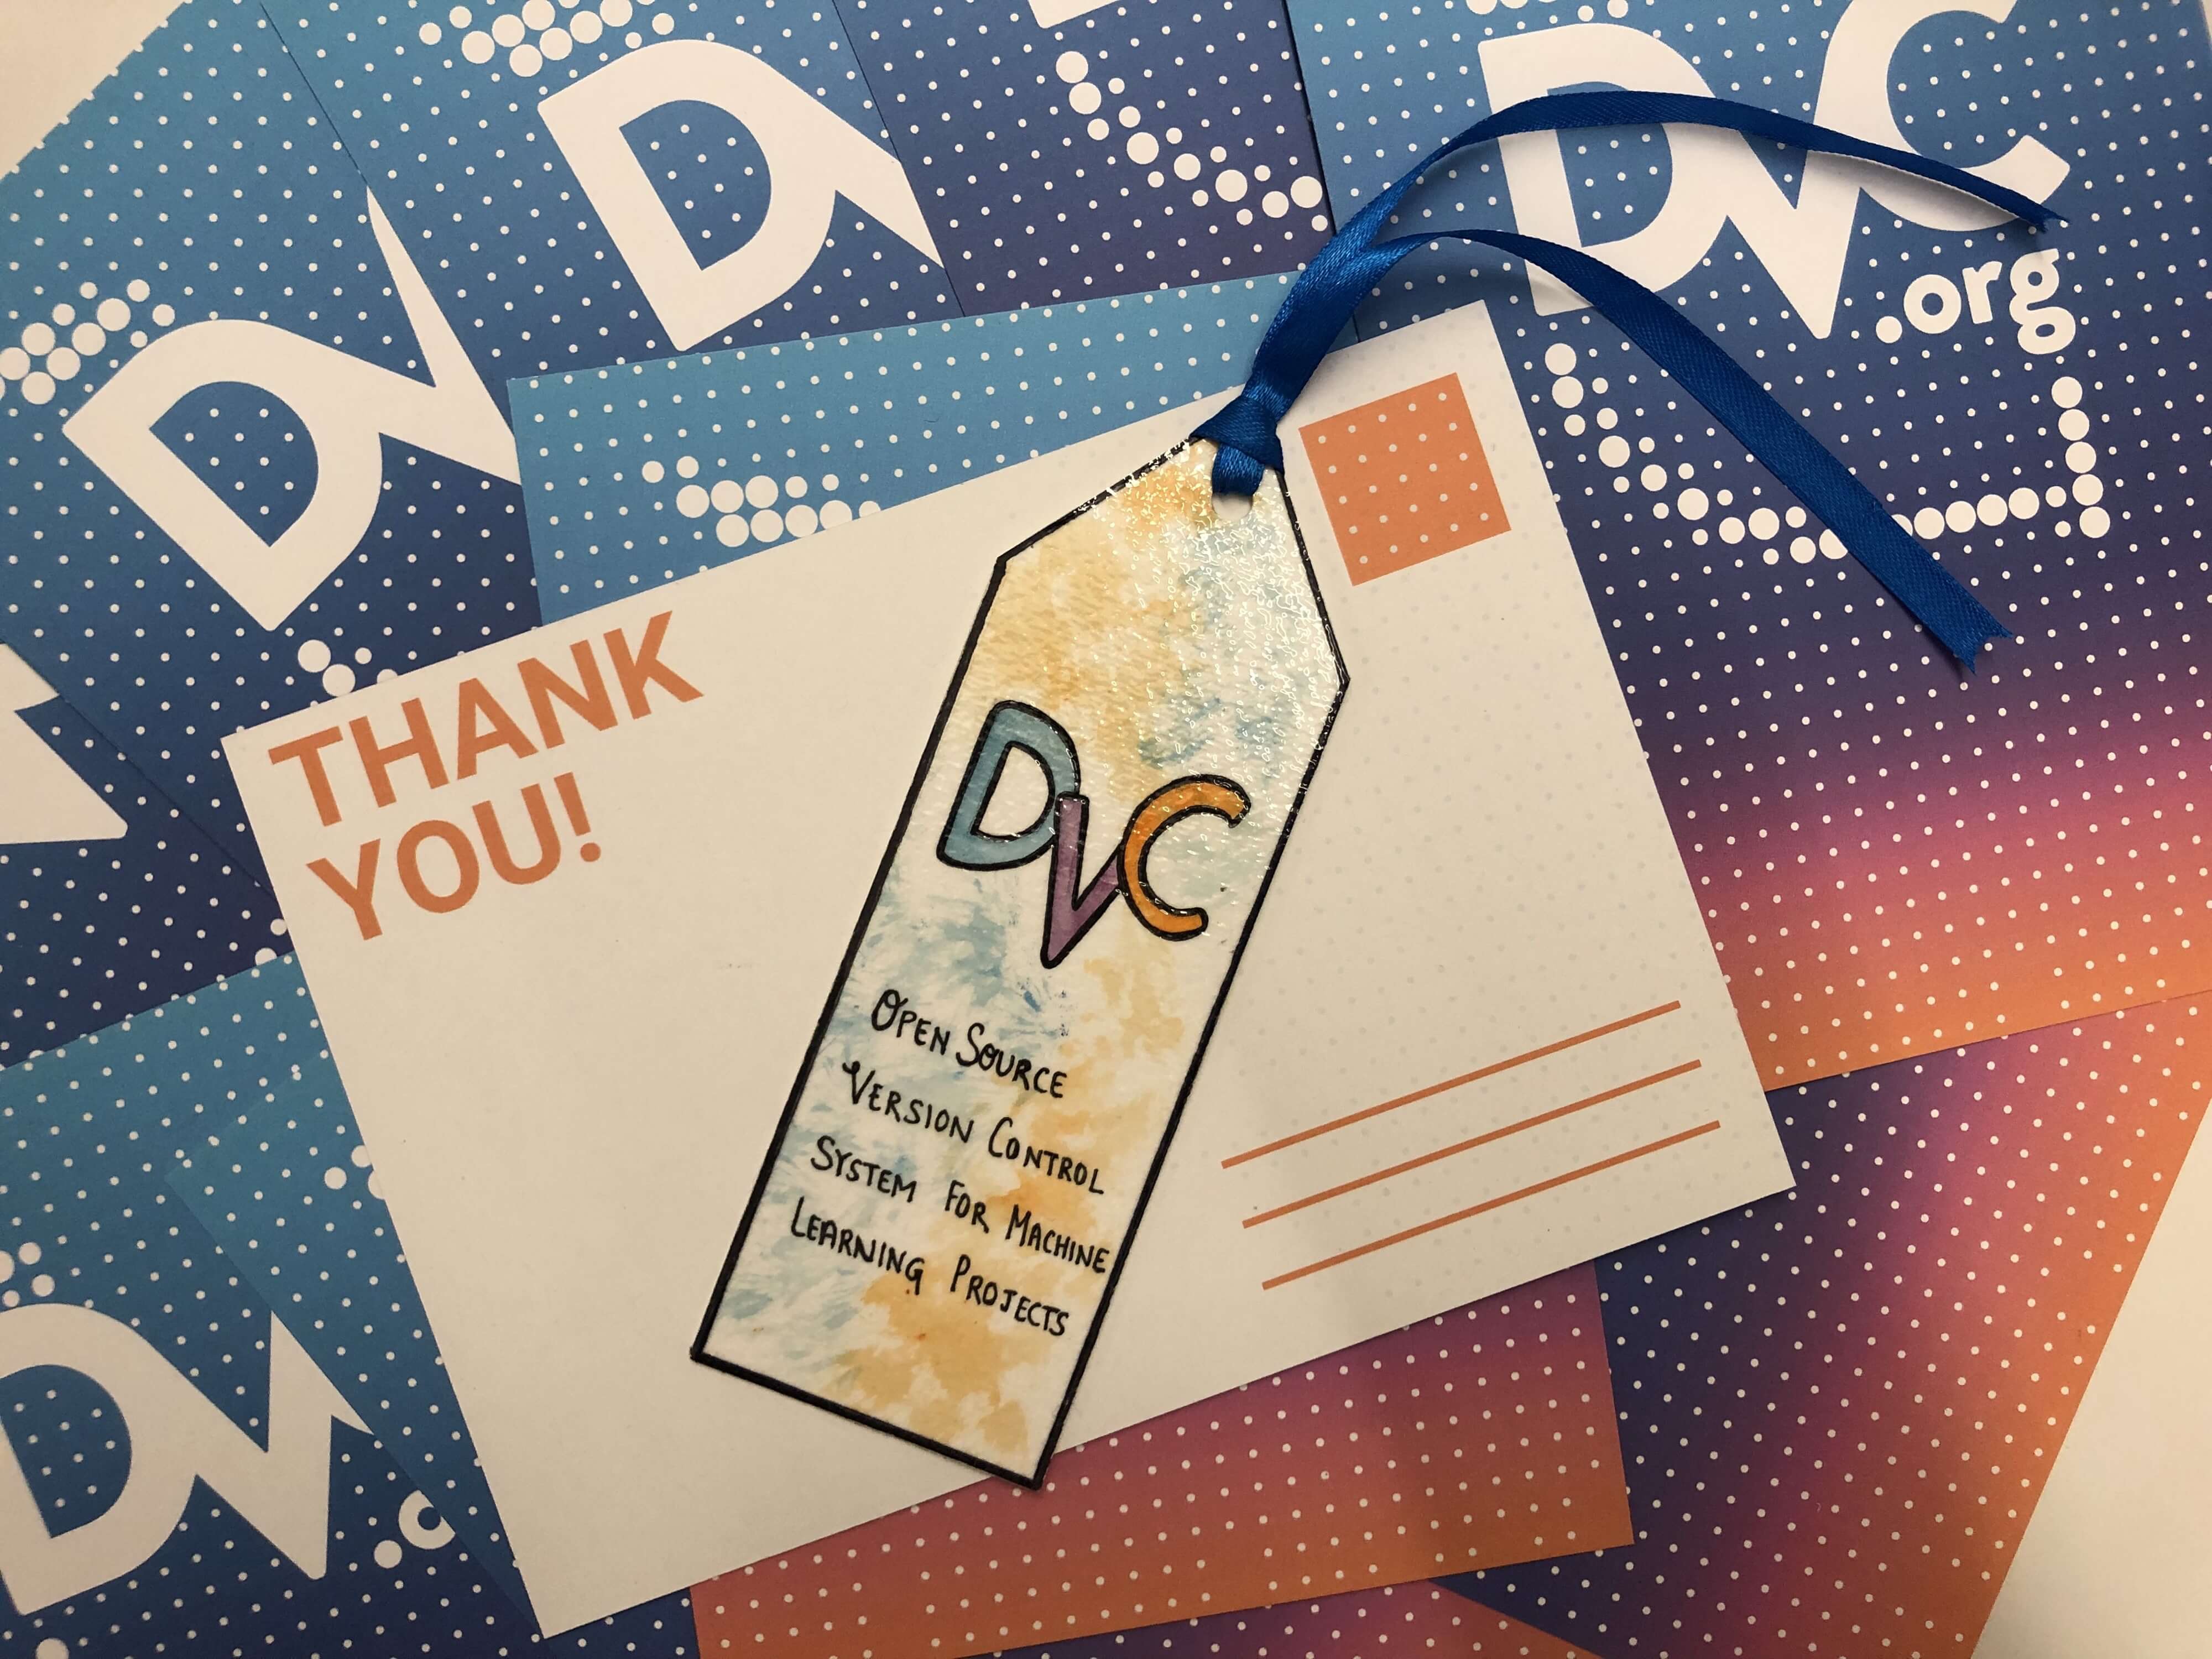 DV
DVC
.org
D
DV
THANK
YOU!
DVC
OPEN SOURCE
VERSION CONTROL
SYSTEM FOR MACHINE
LEARNING PROJECTS
DV
.o